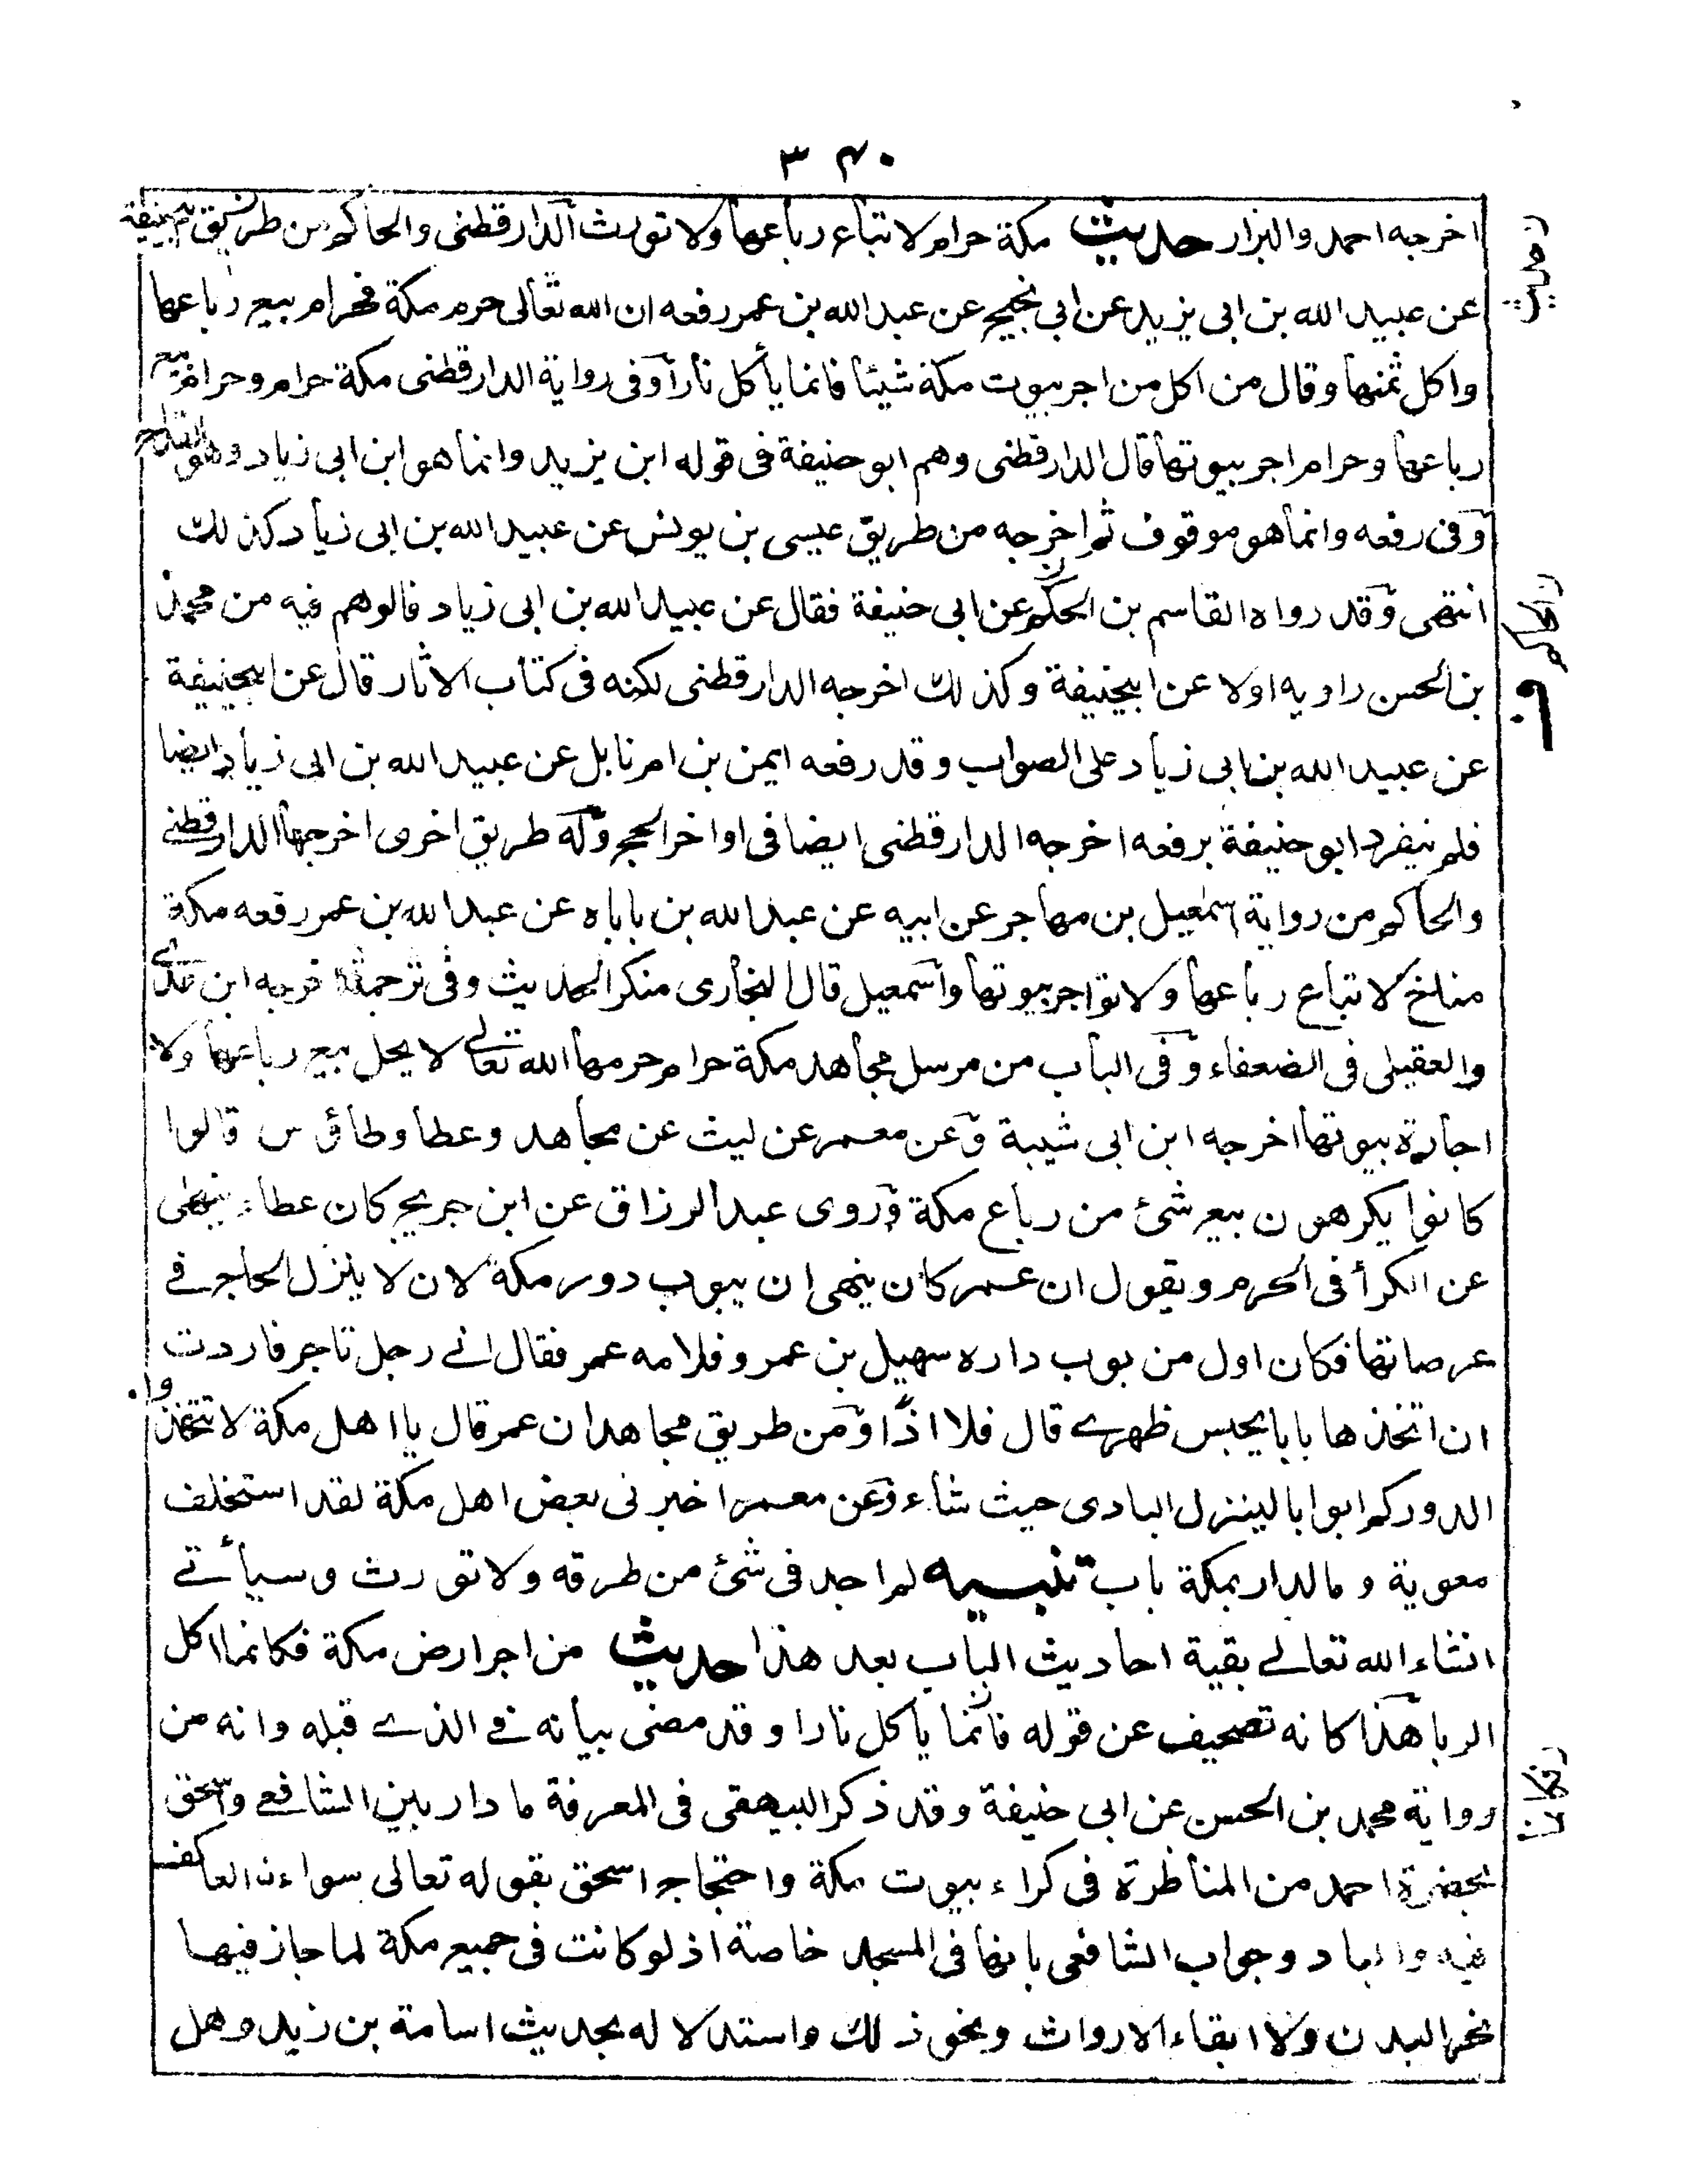 ٣٤٠
اخرجه احمد والبزار حديث مكة حرام لا تباع رباعها ولا تورث الدارقطنى والحاكم من طريق ابيحنيفة
عن عبيد الله بن ابى يزيد عن ابي نجيح عن عبد الله بن عمر رفعه ان الله تعالى حرم مكة فحرام بيع رباعها
واكل ثمنها وقال من اكل من اجر بيوت مكة شيئا فانما يأكل نارا وفى رواية الدارقطنى مكة حرام وحرام بيع
رباعها وحرام اجر بيوتها قال الدارقطنى وهم ابو حنيفة فى قوله ابن يزيد وانما هو ابن ابى زياد وهو القداح
وفى رفعه وانما هو موقوف ثم اخرجه من طريق عيسى بن يونس عن عبيد الله بن ابى زياد كذلك
انتهى وقد رواه القاسم بن الحكم عن ابى حنيفة فقال عن عبيد الله بن ابى زياد فالوهم فيه من محمد
بن الحسن راويه اولا عن ابيحنيفة وكذلك اخرجه الدارقطنى لكنه فى كتاب الاثار قال عن ابيحنيفة
عن عبيد الله بن ابى زياد على الصواب وقد رفعه ايمن بن ام نابل عن عبيد الله بن ابى زياد ايضا
فلم ينفرد ابو حنيفة برفعه اخرجه الدارقطنى ايضا فى اواخر الحج وله طريق اخرى اخرجها الدارقطنے
والحاكم من رواية اسمعيل بن مهاجر عن ابيه عن عبد الله بن باباه عن عبد الله بن عمر رفعه مكة
مناخ لا تباع رباعها ولا تواجر بيوتها واسمعيل قال البخارى منكر الحديث وفى ترجمته اخرجه ابن عدے
والعقيلى فى الضعفاء وفى الباب من مرسل مجاهد مكة حرام حرمها الله تعالے لا يحل بيع رباعها ولا
اجارة بيوتها اخرجه ابن ابى شيبة وعن معمر عن ليث عن مجاهد وعطا وطاؤس قالوا
كانوا يكرهون بيع شئ من رباع مكة وروى عبد الرزاق عن ابن جريج كان عطاء ينهى
عن الكرأ فى الحرم ويقول ان عمر كان ينهى ان يبوب دور مكة لان لا ينزل الحاج فے
عرصاتها فكان اول من بوب داره سهيل بن عمرو فلامه عمر فقال انے رجل تاجر فاردت
ان اتخذها بابا يحبس ظهرے قال فلا اذا ومن طريق مجاهد ان عمر قال يا اهل مكة لا تتخذوا
الدوركم ابوابا لينزل البادى حيث شاء وعن معمر اخبرنى بعض اهل مكة لقد استخلف
معوية وما لدار بمكة باب تنبيه لم اجد فى شئ من طرقه ولا تورث وسيأتے
انشاء الله تعالے بقية احاديث الباب بعد هذا حديث من اجر ارض مكة فكانما اكل
الربا هذا كانه تصحيف عن قوله فانما يأكل نارا وقد مضى بيانه فے الذے قبله وانه من
رواية محمد بن الحسن عن ابى حنيفة وقد ذكر البيهقى فى المعرفة ما دار بين الشافعے واسحق
بحضرة احمد من المناظرة فى كراء بيوت مكة واحتجاج اسحق بقوله تعالى سواءن العاكف
فيه والباد وجواب الشافعى بانها فى المسجد خاصة اذ لو كانت فى جميع مكة لما جاز فيها
نحر البدن ولا ابقاء الارواث ونحو ذلك واستدلاله بحديث اسامة بن زيد وهل